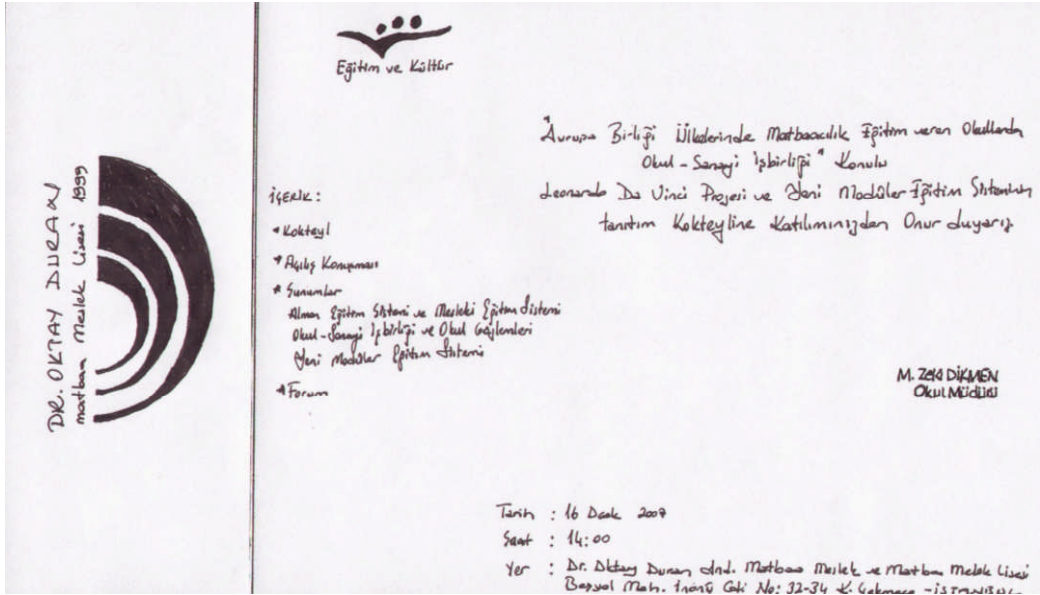 DR. OKTAY DURAN
matbaa Meslek Lisesi 1999
Eğitim ve Kültür
"Avrupa Birliği Ülkelerinde Matbaacılık Eğitim veren Okullarda
Okul - Sanayi İşbirliği" Konulu
Leonardo Da Vinci Projesi ve Yeni Modüler Eğitim Sisteminin
tanıtım Kokteyline Katılımınızdan Onur duyarız.
İÇERİK :
* Kokteyl
* Açılış Konuşması
* Sunumlar
Alman Eğitim Sistemi ve Mesleki Eğitim Sistemi
Okul - Sanayi İşbirliği ve Okul Gözlemleri
Yeni Modüler Eğitim Sistemi
* Forum
M. ZEKİ DİKMEN
Okul Müdürü
Tarih : 16 Ocak 2007
Saat : 14:00
Yer : Dr. Oktay Duran And. Matbaa Meslek ve Matbaa Meslek Lisesi
Beşyol Mah. İnönü Cad. No: 32-34 K. Çekmece - İSTANBUL